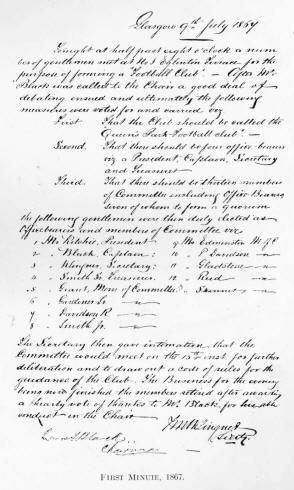 Glasgow 9th July 1867
Tonight at half past eight o'clock a num
ber of gentlemen met at No 3 Eglinton Terrace for the
purpose of forming a "Football Club". — After Mr
Black was called to the Chair a good deal of
debating ensued and ultimately the following
measures were voted for and carried viz
First. That the Club should be called the
Queen's Park Football Club". —
Second. That there should be four office-bearers
viz a President, Captain, Secretary
and Treasurer
Third. That there should be thirteen members
of Committee including Office Bearers
seven of whom to form a quorum
The following gentlemen were then duly elected as
Office bearers and members of Committee viz
1 Mr Ritchie, President 9 Mr Edmiston M of C
2 " Black, Captain: 10 " P Davidson — " —
3 " Klinguer, Secretary: 11 " Gladstone — " —
4 " Smith Sr Treasurer 12 " Reid — " —
5 " Grant, Mem of Committee. — " —
6 " Gardner Sr — " —
7 " Davidson R — " —
8 " Smith Jr. — " —
The Secretary then gave intimation that the
Committee would meet on the 15th inst for further
deliberation and to draw out a code of rules for the
guidance of the Club. The Business for the evening
being now finished the members retired after awarding
a hearty vote of thanks to Mr Black. for his able
conduct in the Chair
Black Klinguer
Chairman Secty.
FIRST MINUTE, 1867.